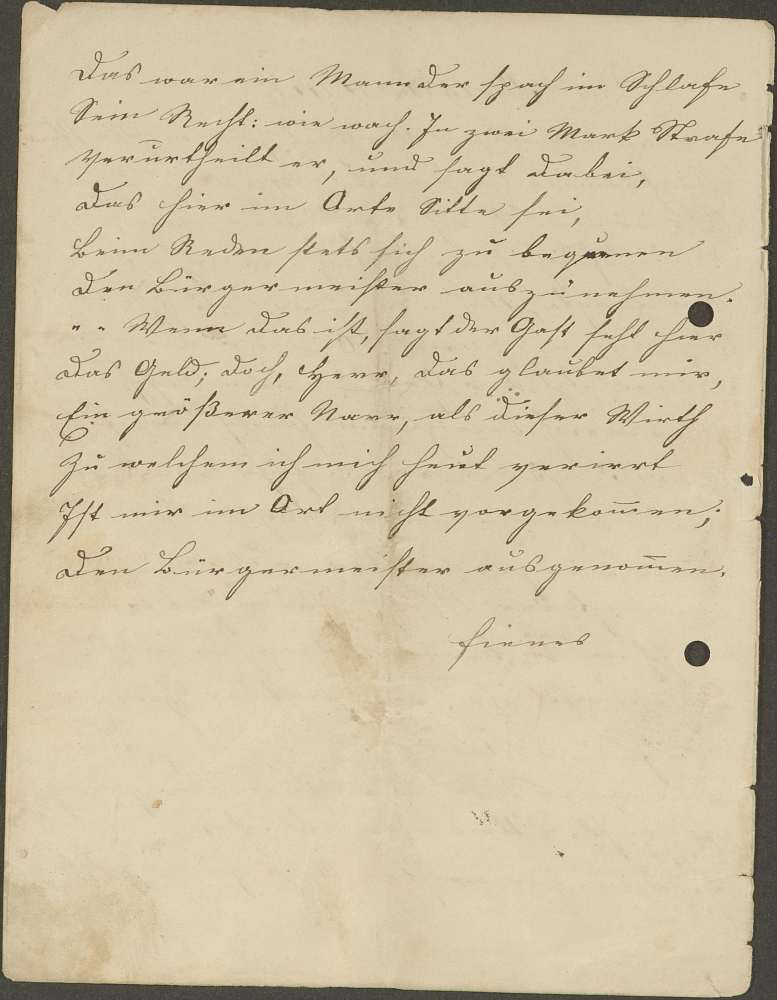 Das war ein Mann der spach im Schlafe
Sein Recht: wie wach. In zwei Mark Strafe
Verurtheilt er, und sagt dabei,
Das hier im Orte Sitte sei,
Beim Reden stets sich zu bequemen
Den Bürgermeister auszunehmen.
" " Wenn das ist, sagt der Gast seht hier
Das Geld; doch, Herr, das glaubet mir,
Ein größerer Narr, als dieser Wirth
Zu welchem ich mich heut verirrt
Ist mir im Ort nicht vorgekom̅en;
Den Bürgermeister ausgenom̅en.